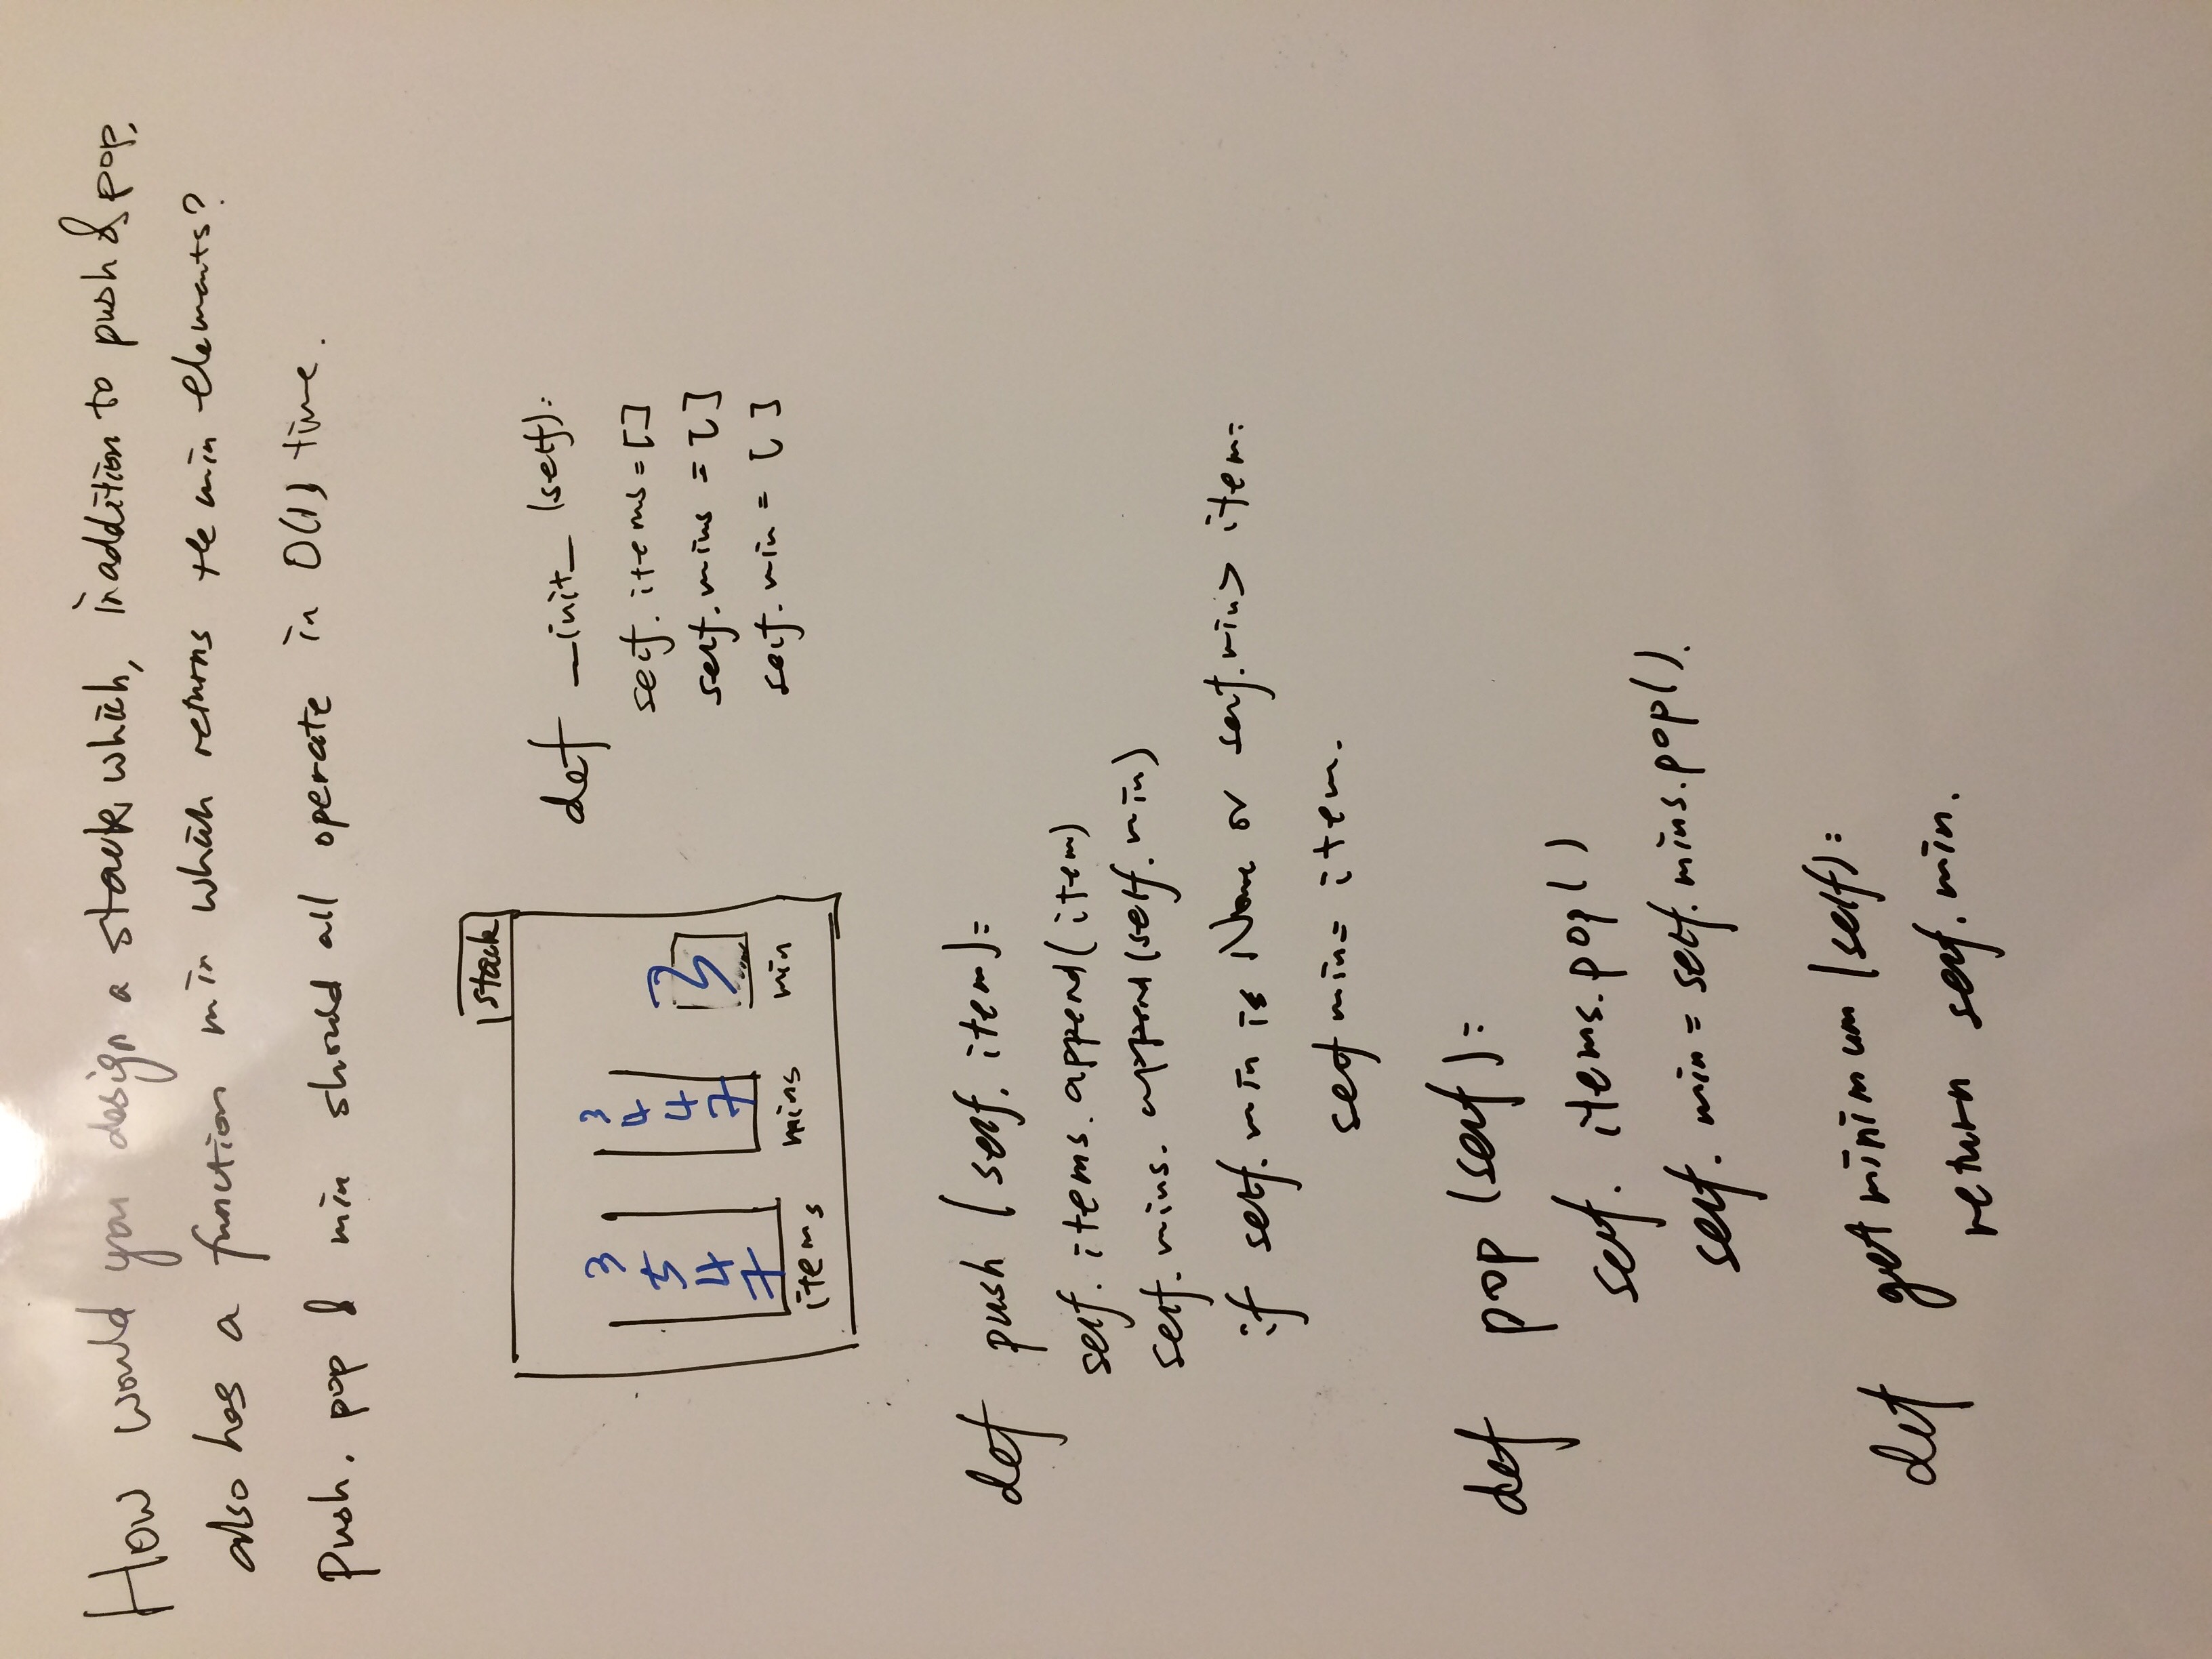 How would you design a stack which, in addition to push & pop,
also has a function min which returns the min elements?
Push, pop & min should all operate in O(1) time.
stack
3
5
4
7
items
3
4
4
7
mins
3
min
def _init_ (self):
self.items = []
self.mins = []
self.min = []
def push (self, item):
self.items.append(item)
self.mins.append(self.min)
if self.min is None or self.min > item:
self min = item.
def pop (self):
self.items.pop()
self.min = self.mins.pop().
def getminimum (self):
return self.min.